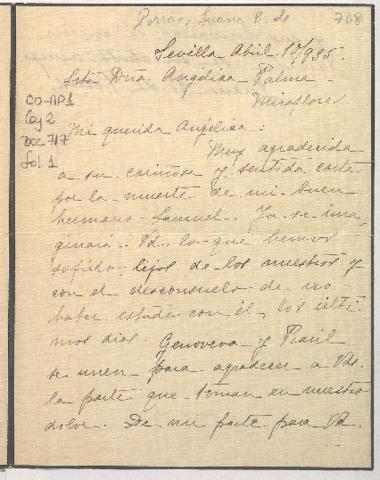 Porras, Juana B. de
768
Sevilla Abril 10/935.
Srta Dña. Angélica Palma
Miraflores
CO-AP1
Cj 2
Doc 717
Fol. 1
Mi querida Angélica:
Muy agradecida
a su cariñosa y sentida carta
por la muerte de mi buen
hermano Samuel. Ya se ima
ginará Vd. lo que hemos
sufrido, lejos de los nuestros y
con el desconsuelo de no
haber estado con él, los últi
mos días. Genoveva y Raúl
se unen para agradecer a Vds.
la parte que toman en nuestro
dolor. De mi parte para Vd.